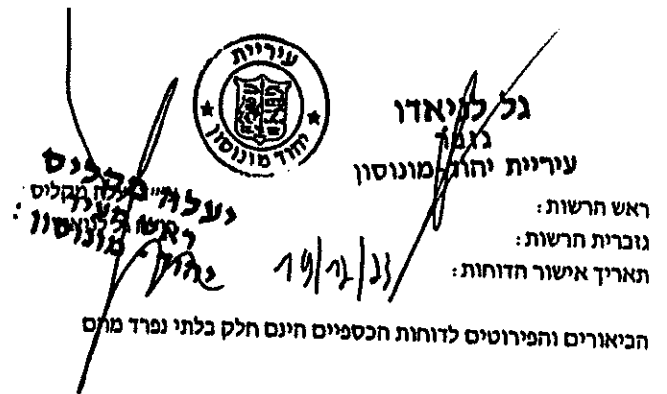 עיריית
יהוד מונוסון
גל לניאדו
גזבר
עיריית יהוד מונוסון
יעלה מקליס
ראש העיר
יהוד - מונוסון
ראש הרשות:
יעלה מקליס
גזברית הרשות:
תאריך אישור הדוחות:
הביאורים והפירוטים לדוחות הכספיים הינם חלק בלתי נפרד מהם